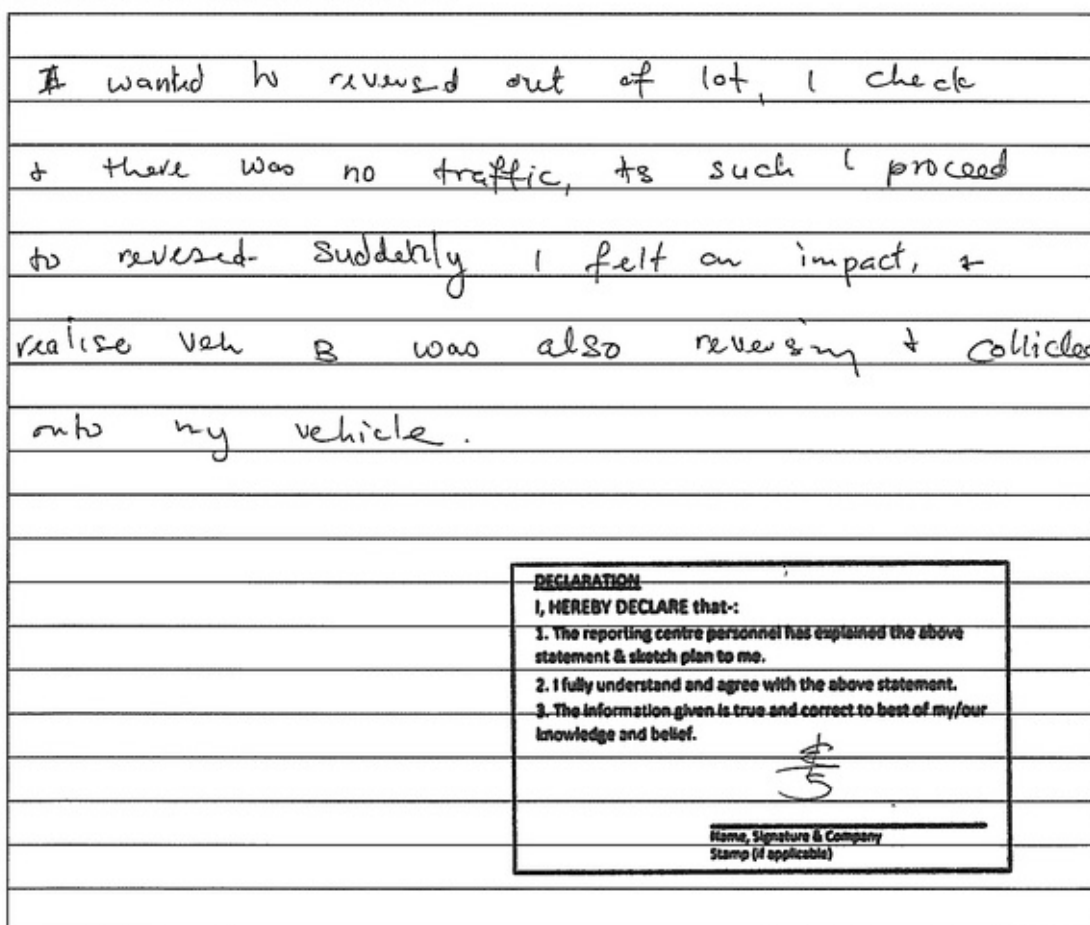 I wanted to reversed out of lot, I check
& there was no traffic, As such I proceed
to revesed. Suddenly I felt an impact, &
realise veh B was also reversing & collided
onto my vehicle.
DECLARATION
I, HEREBY DECLARE that-:
1. The reporting centre personnel has explained the above
statement & sketch plan to me.
2. I fully understand and agree with the above statement.
3. The information given is true and correct to best of my/our
knowledge and belief.
Name, Signature & Company
Stamp (if applicable)